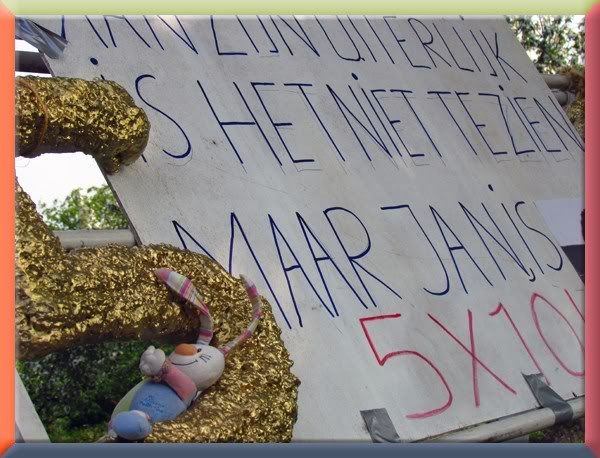 AAN ZIJN UITERLIJK
IS HET NIET TE ZIEN
MAAR JAN IS
5X10!